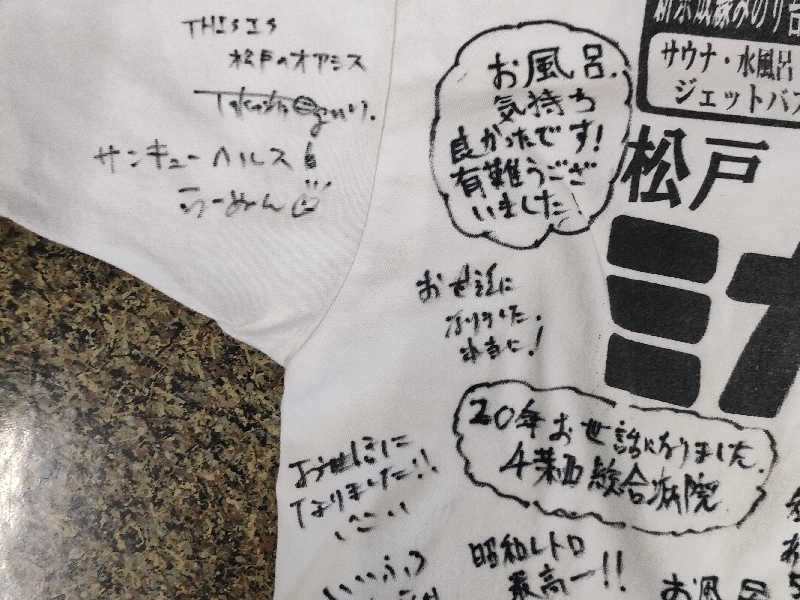 THIS IS
松戸のオアシス
サンキューヘルス!
らーめん
お風呂、
気持ち
良かったです!
有難うござ
いました!
新京成線みのり台
サウナ・水風呂
ジェットバス
松戸
ミナ
お世話に
なりました。
本当に!
20年お世話になりました。
総合病院
お世話に
なりました!!
昭和レトロ
最高ー!!
お風呂